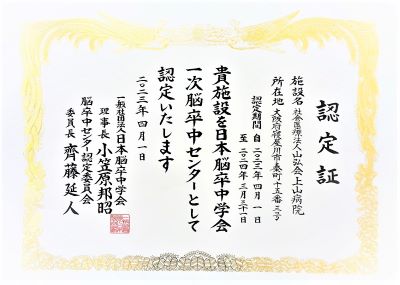 認定証
施設名 社会医療法人山弘会 上山病院
所在地 大阪府寝屋川市秦町十五番三号
認定期間 自 二〇二三年 四月 一日
至 二〇二四年 三月三十一日
貴施設を日本脳卒中学会
一次脳卒中センターとして
認定いたします
二〇二三年 四月一日
一般社団法人日本脳卒中学会
理事長 小笠原邦昭
脳卒中センター認定委員会
委員長 齊藤延人